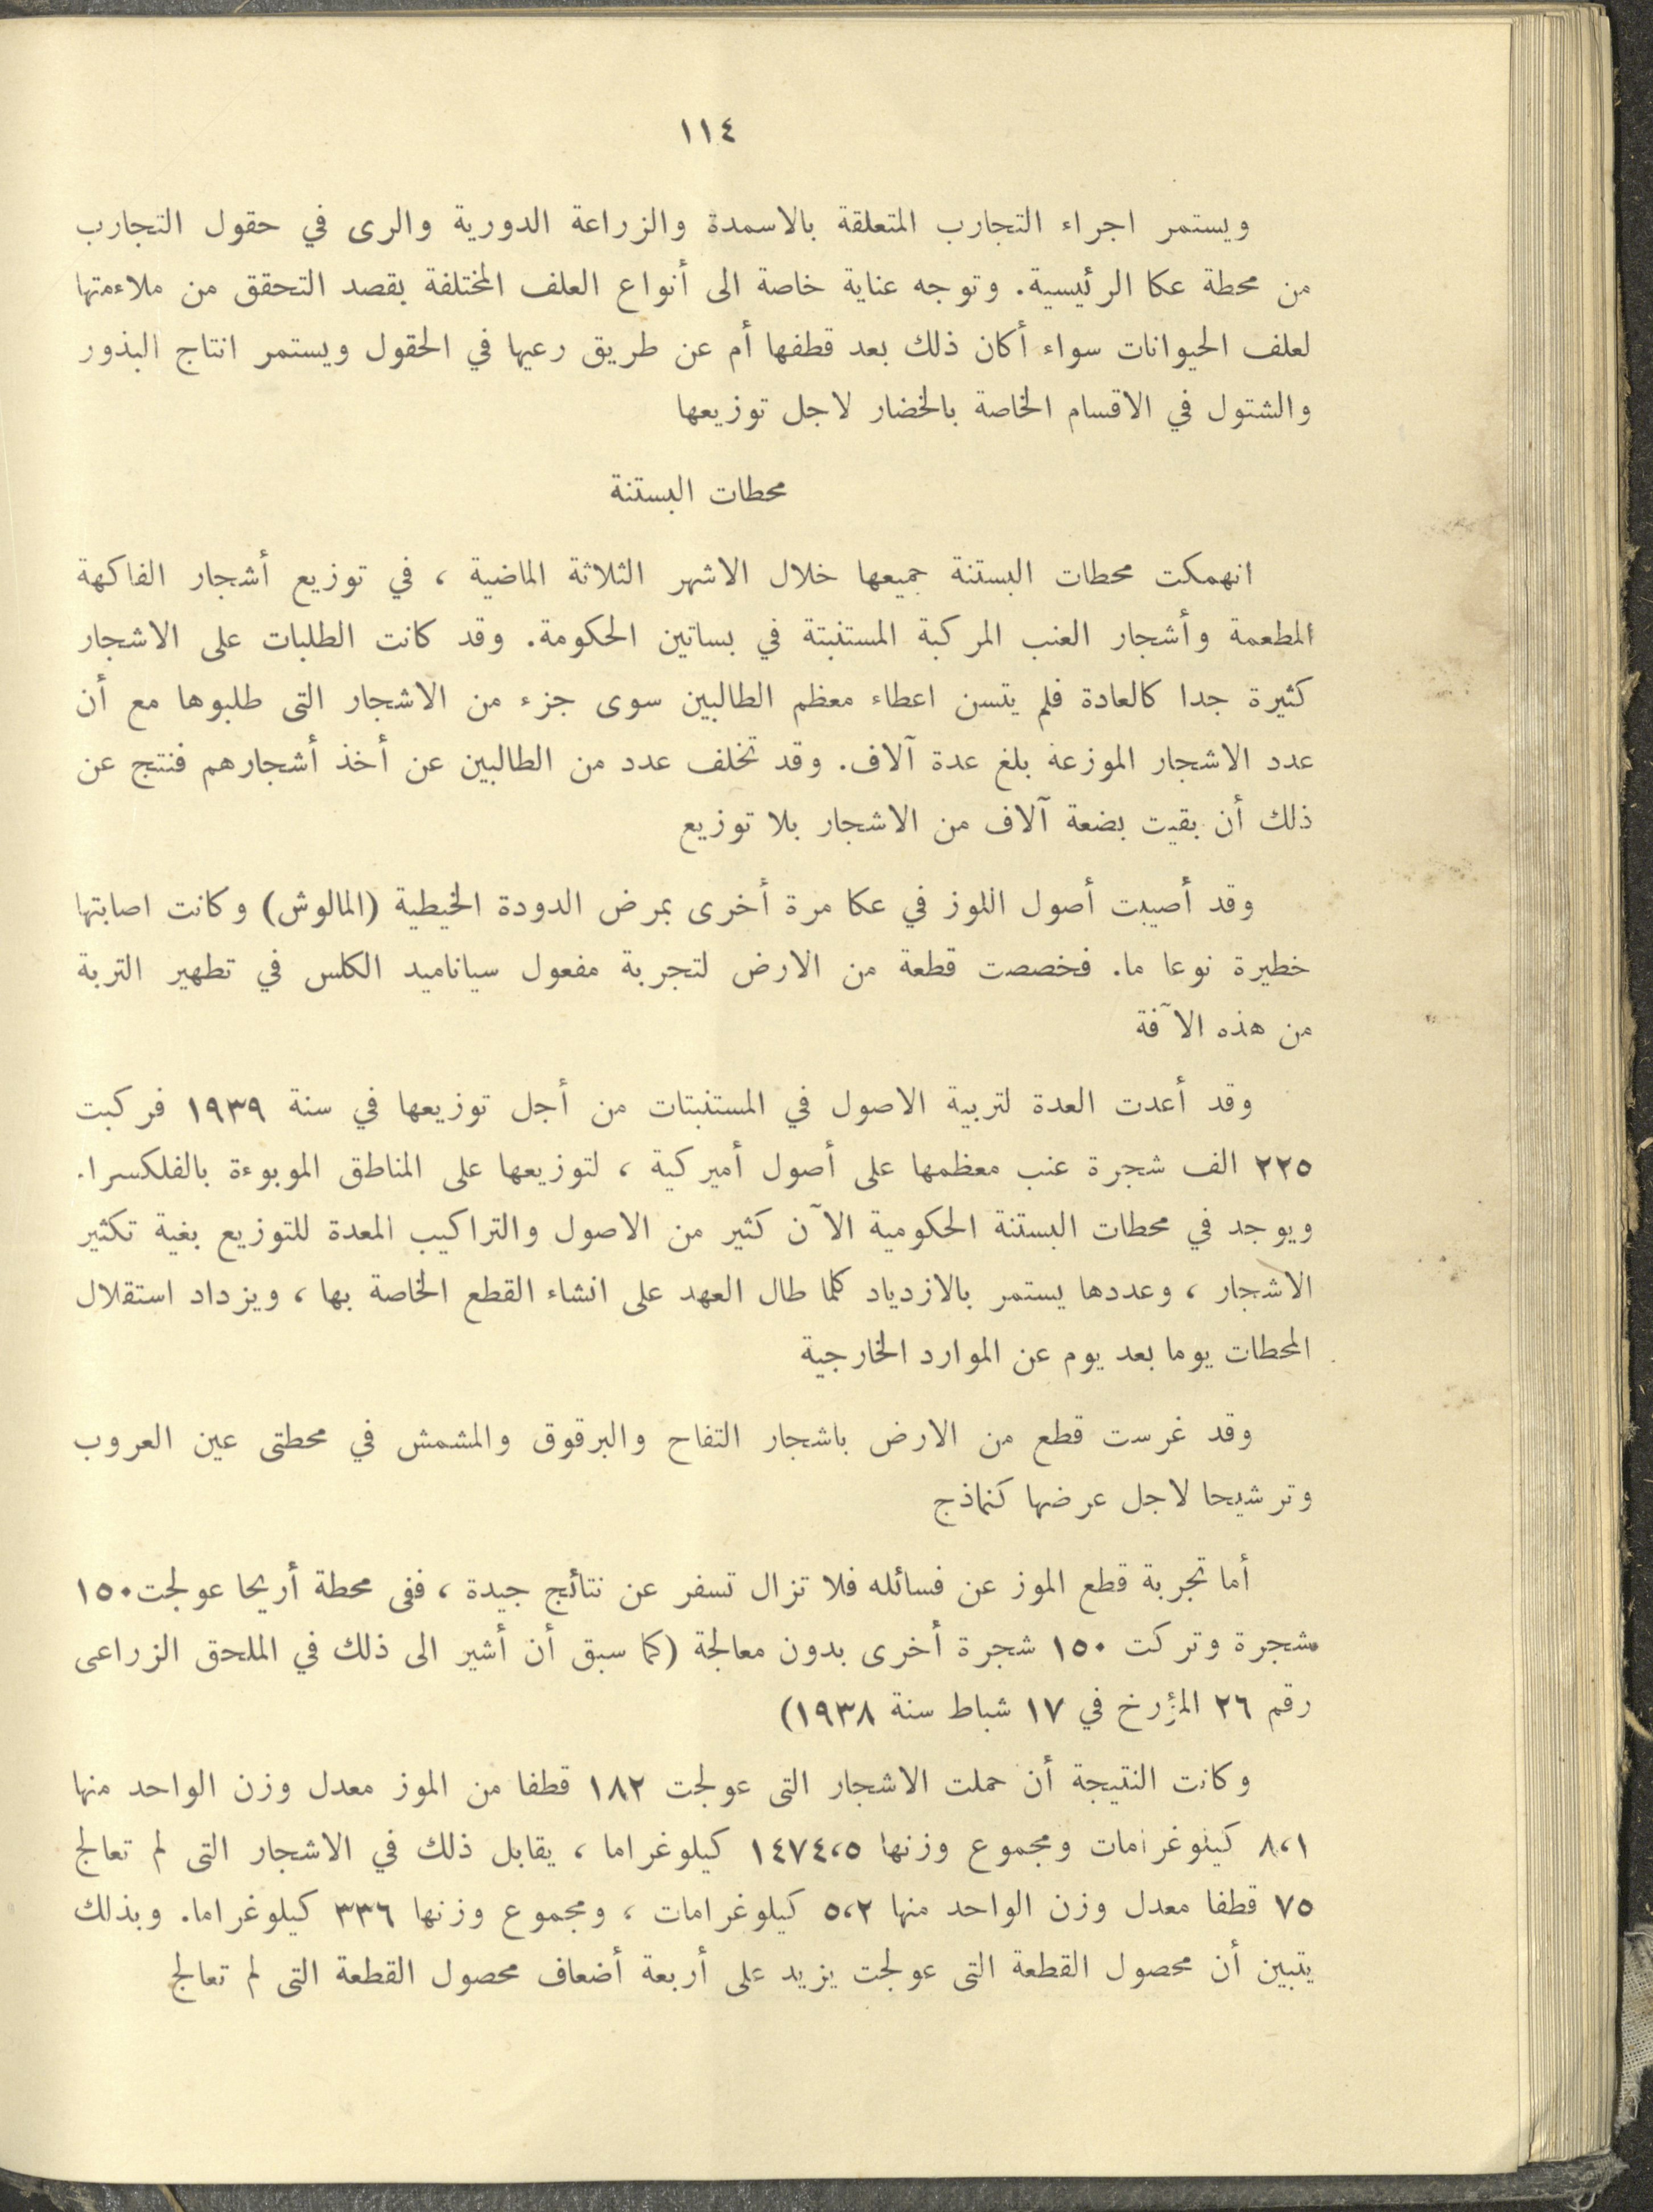 ١١٤
ويستمر اجراء التجارب المتعلقة بالاسمدة والزراعة الدورية والرى في حقول التجارب
من محطة عكا الرئيسية. وتوجه عناية خاصة الى أنواع العلف المختلفة بقصد التحقق من ملاءمتها
لعلف الحيوانات سواء أكان ذلك بعد قطفها أم عن طريق رعيها في الحقول ويستمر انتاج البذور
والشتول في الاقسام الخاصة بالخضار لاجل توزيعها
محطات البستنة
انهمكت محطات البستنة جميعها خلال الاشهر الثلاثة الماضية ، في توزيع أشجار الفاكهة
المطعمة وأشجار العنب المركبة المستنبتة في بساتين الحكومة. وقد كانت الطلبات على الاشجار
كثيرة جدا كالعادة فلم يتسن اعطاء معظم الطالبين سوى جزء من الاشجار التى طلبوها مع أن
عدد الاشجار الموزعة بلغ عدة آلاف. وقد تخلف عدد من الطالبين عن أخذ أشجارهم فنتج عن
ذلك أن بقيت بضعة آلاف من الاشجار بلا توزيع
وقد أصيبت أصول اللوز في عكا مرة أخرى بمرض الدودة الخيطية (المالوش) وكانت اصابتها
خطيرة نوعا ما. فخصصت قطعة من الارض لتجربة مفعول سياناميد الكلس في تطهير التربة
من هذه الآفة
وقد أعدت العدة لتربية الاصول في المستنبتات من أجل توزيعها في سنة ١٩٣٩ فركبت
٢٢٥ الف شجرة عنب معظمها على أصول أميركية ، لتوزيعها على المناطق الموبوءة بالفلكسرا.
ويوجد في محطات البستنة الحكومية الآن كثير من الاصول والتراكيب المعدة للتوزيع بغية تكثير
الاشجار ، وعددها يستمر بالازدياد كلما طال العهد على انشاء القطع الخاصة بها ، ويزداد استقلال
المحطات يوما بعد يوم عن الموارد الخارجية
وقد غرست قطع من الارض باشجار التفاح والبرقوق والمشمش في محطتى عين العروب
وترشيحا لاجل عرضها كنماذج
أما تجربة قطع الموز عن فسائله فلا تزال تسفر عن نتائج جيدة ، ففى محطة أريحا عولجت ١٥٠
شجرة وتركت ١٥٠ شجرة أخرى بدون معالجة (كما سبق أن أشير الى ذلك في الملحق الزراعى
رقم ٢٦ المؤرخ في ١٧ شباط سنة ١٩٣٨)
وكانت النتيجة أن حملت الاشجار التى عولجت ١٨٢ قطفا من الموز معدل وزن الواحد منها
٨،١ كيلوغرامات ومجموع وزنها ١٤٧٤،٥ كيلوغراما ، يقابل ذلك في الاشجار التى لم تعالج
٧٥ قطفا معدل وزن الواحد منها ٥،٢ كيلوغرامات ، ومجموع وزنها ٣٣٦ كيلوغراما. وبذلك
يتبين أن محصول القطعة التى عولجت يزيد على أربعة أضعاف محصول القطعة التى لم تعالج